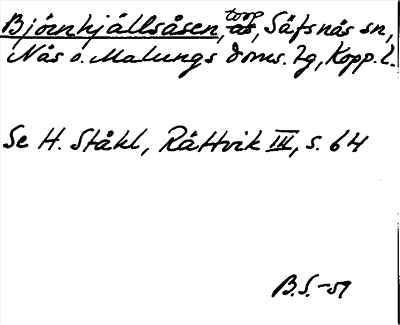 Björnhjällsåsen, torp, Säfsnäs sn,
Nås o. Malungs doms. tg, Kopp. l.
Se H. Ståhl, Rättvik III, s. 64
B.S.-59